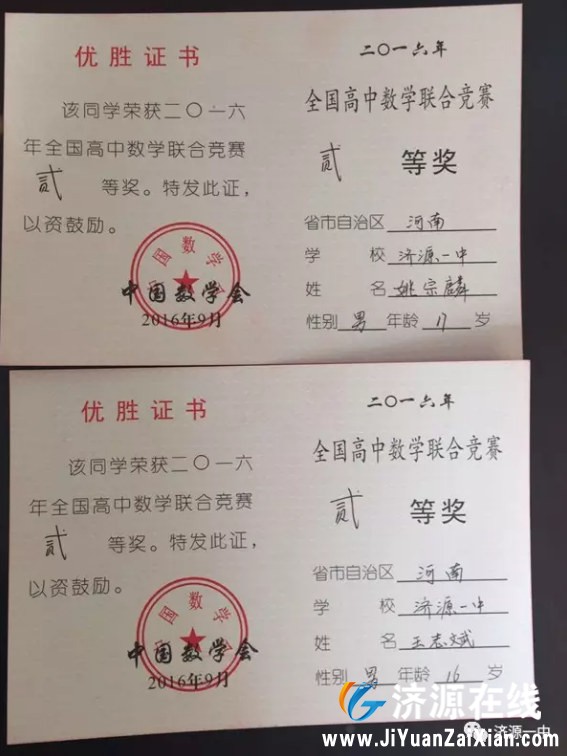 优胜证书
该同学荣获二〇一六
年全国高中数学联合竞赛
贰 等奖。特发此证，
以资鼓励。
中国数学会
2016年9月
二〇一六年
全国高中数学联合竞赛
贰 等奖
省市自治区 河南
学 校 济源一中
姓 名 姚宗麟
性别 男 年龄 17 岁
优胜证书
该同学荣获二〇一六
年全国高中数学联合竞赛
贰 等奖。特发此证，
以资鼓励。
中国数学会
2016年9月
二〇一六年
全国高中数学联合竞赛
贰 等奖
省市自治区 河南
学 校 济源一中
姓 名 王志斌
性别 男 年龄 16 岁
济源在线
济源一中
www.JiYuanZaiXian.com